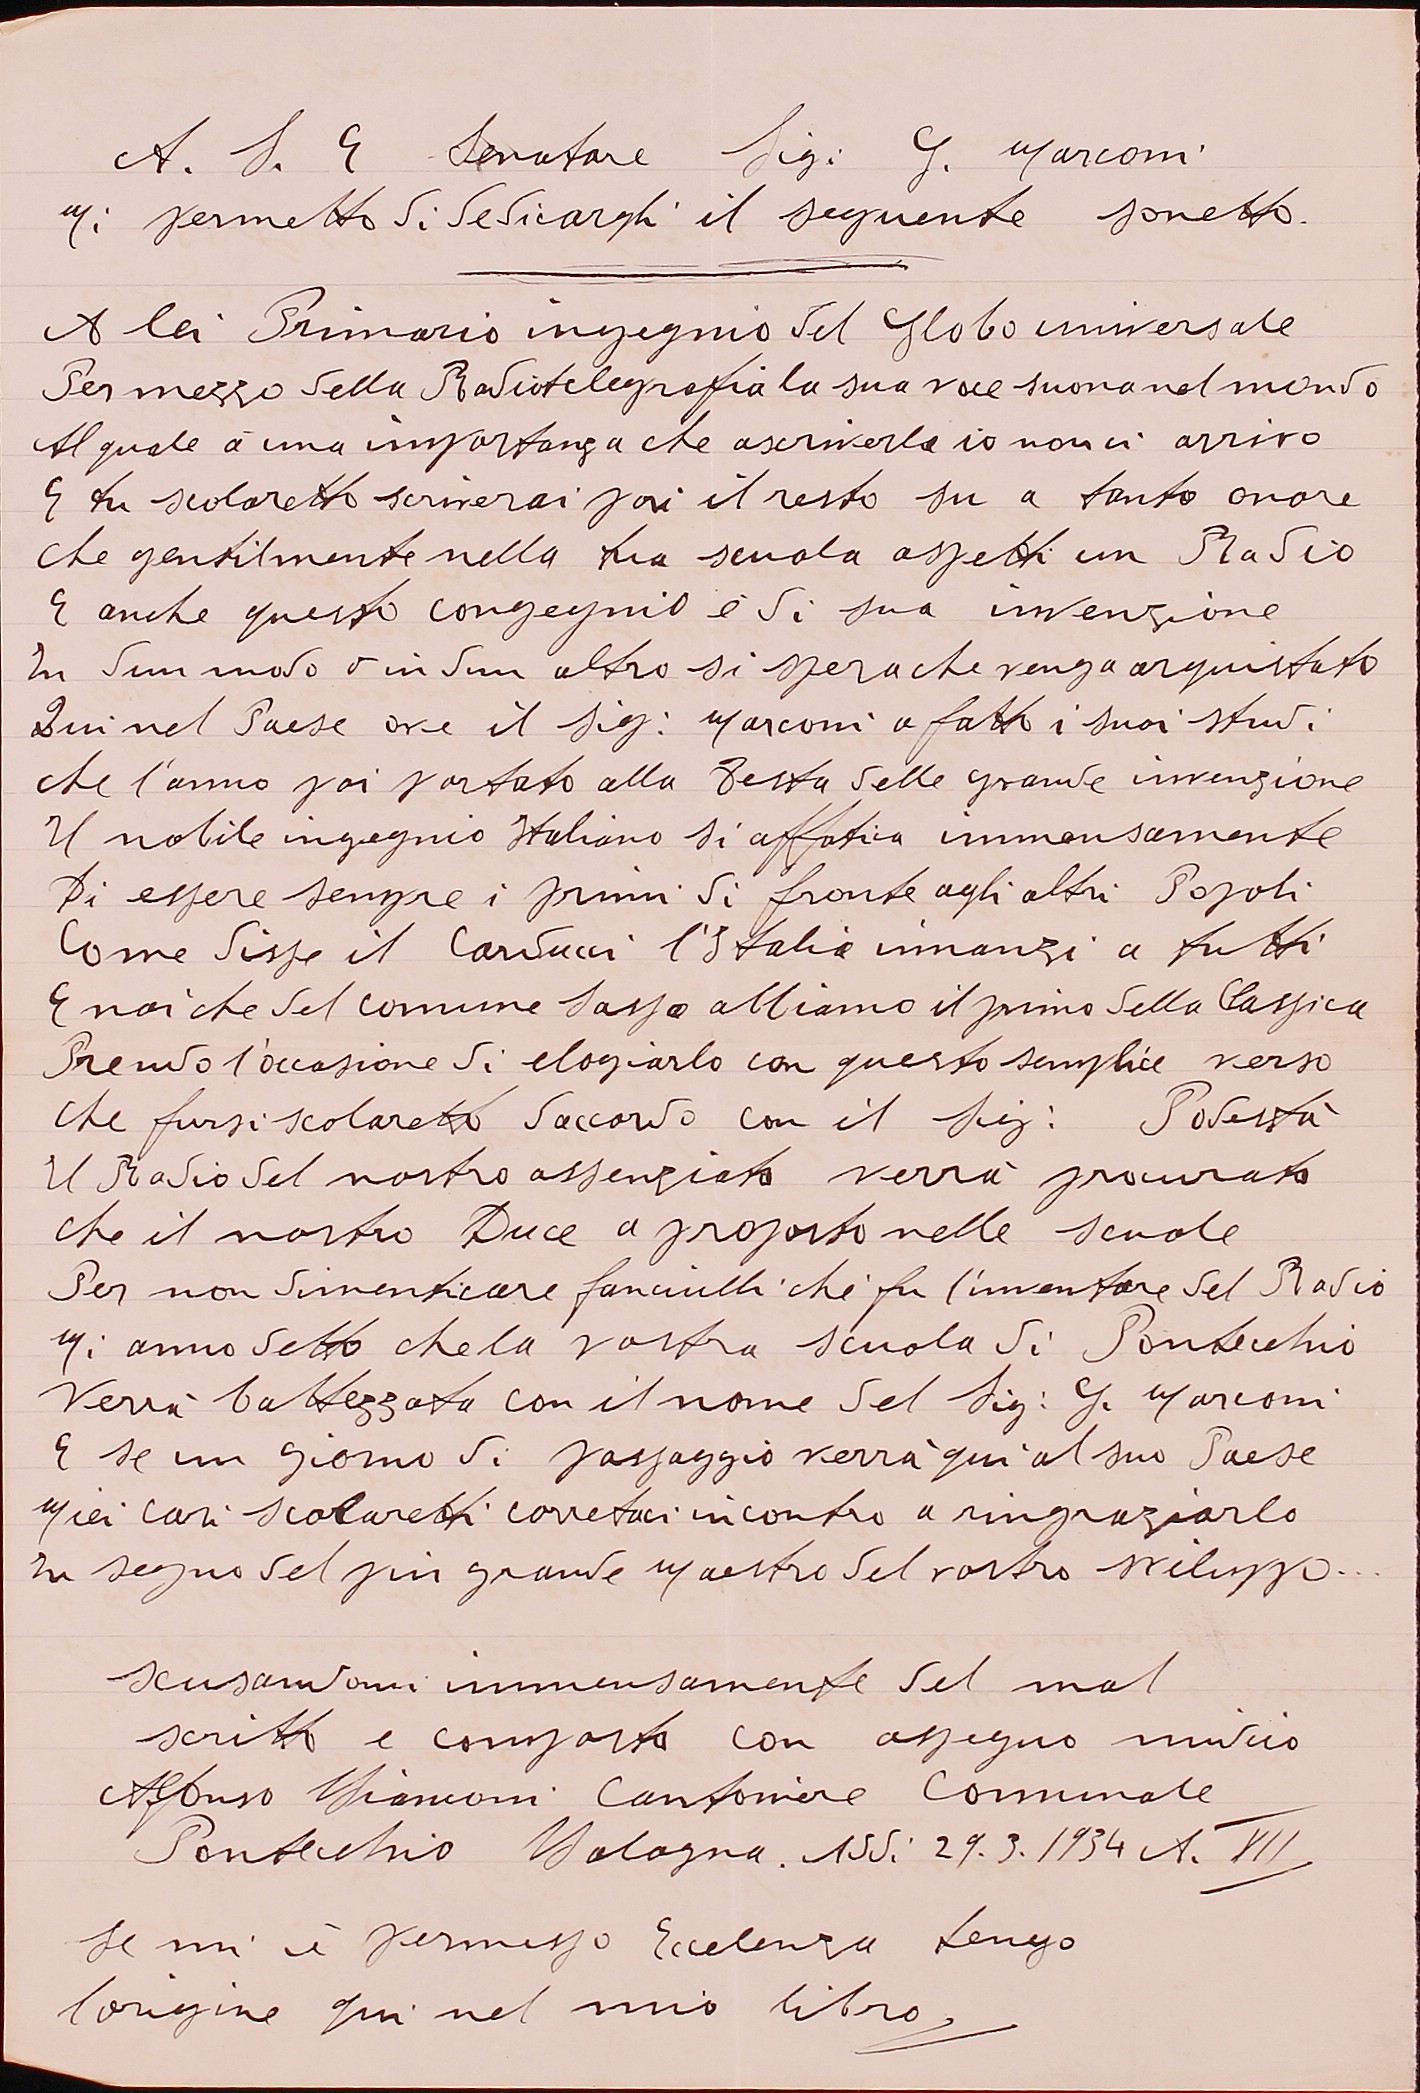 A. S. E Senatore Sig: G. Marconi
Mi permetto di dedicarghi il seguente sonetto.
A lei Primario ingegnio del Globo universale
Per mezzo della Radiotelegrafia la sua voce suona nel mondo
Al quale à una importanza che a scriverla io non ci arrivo
E tu scolaretto scriverai poi il resto su a tanto onore
che gentilmente nella tua scuola aspetti un Radio
E anche questo congegnio è di sua invenzione
In dun modo o in dun altro si spera che venga arquistato
Qui nel Paese ove il Sig: Marconi a fatto i suoi studi
che l'anno poi portato alla Testa delle grande invenzione
Il nobile ingegnio Italiano si affatica immensamente
Di essere sempre i primi di fronte agli altri Popoli
Come disse il Carducci l'Italia innanzi a tutti
E noi che del comune Sasso abbiamo il primo della Classica
Prendo l'occasione di elogiarlo con questo semplice verso
che fursi scolaretto daccordo con il Sig: Podestà
Il Radio del nostro assenziato verrà procurato
che il nostro Duce a proposto nelle scuole
Per non dimenticare fanciulli chi fu l'inventore del Radio
Mi anno detto che la vostra scuola di Pontecchio
Verrà battezzata con il nome del Sig: G. Marconi
E se un giorno di passaggio verrà qui al suo Paese
Miei cari scolaretti correteci incontro a ringraziarlo
In segno del piu grande Maestro del vostro sviluppo...
scusandomi immensamente del mal
scritto e composto con assegno
Alfonso Cantoniere Comunale
Pontecchio Bologna. Addi 29.3.1934 A. XII
Se mi è permesso Eccelenza tengo
lorigine qui nel mio libro